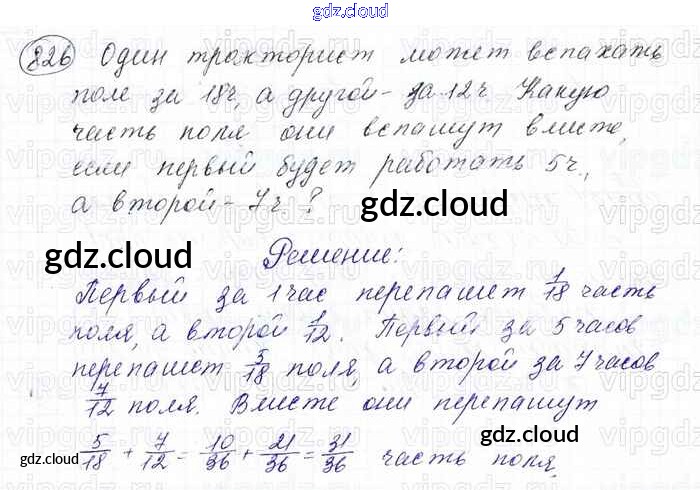 gdz.cloud
826 Один тракторист может вспахать
поле за 18ч, а другой - за 12ч Какую
часть поля они вспашут вместе,
если первый будет работать 5ч.,
а второй - 7ч ?
gdz.cloud
gdz.cloud
Решение:
Первый за 1 час перепашет 1/18 часть
поля, а второй 1/12. Первый за 5 часов
перепашет 5/18 поля, а второй за 7 часов
7/12 поля. Вместе они перепашут
gdz.cloud
5/18 + 7/12 = 10/36 + 21/36 = 31/36 часть поля.
gdz.cloud
gdz.cloud